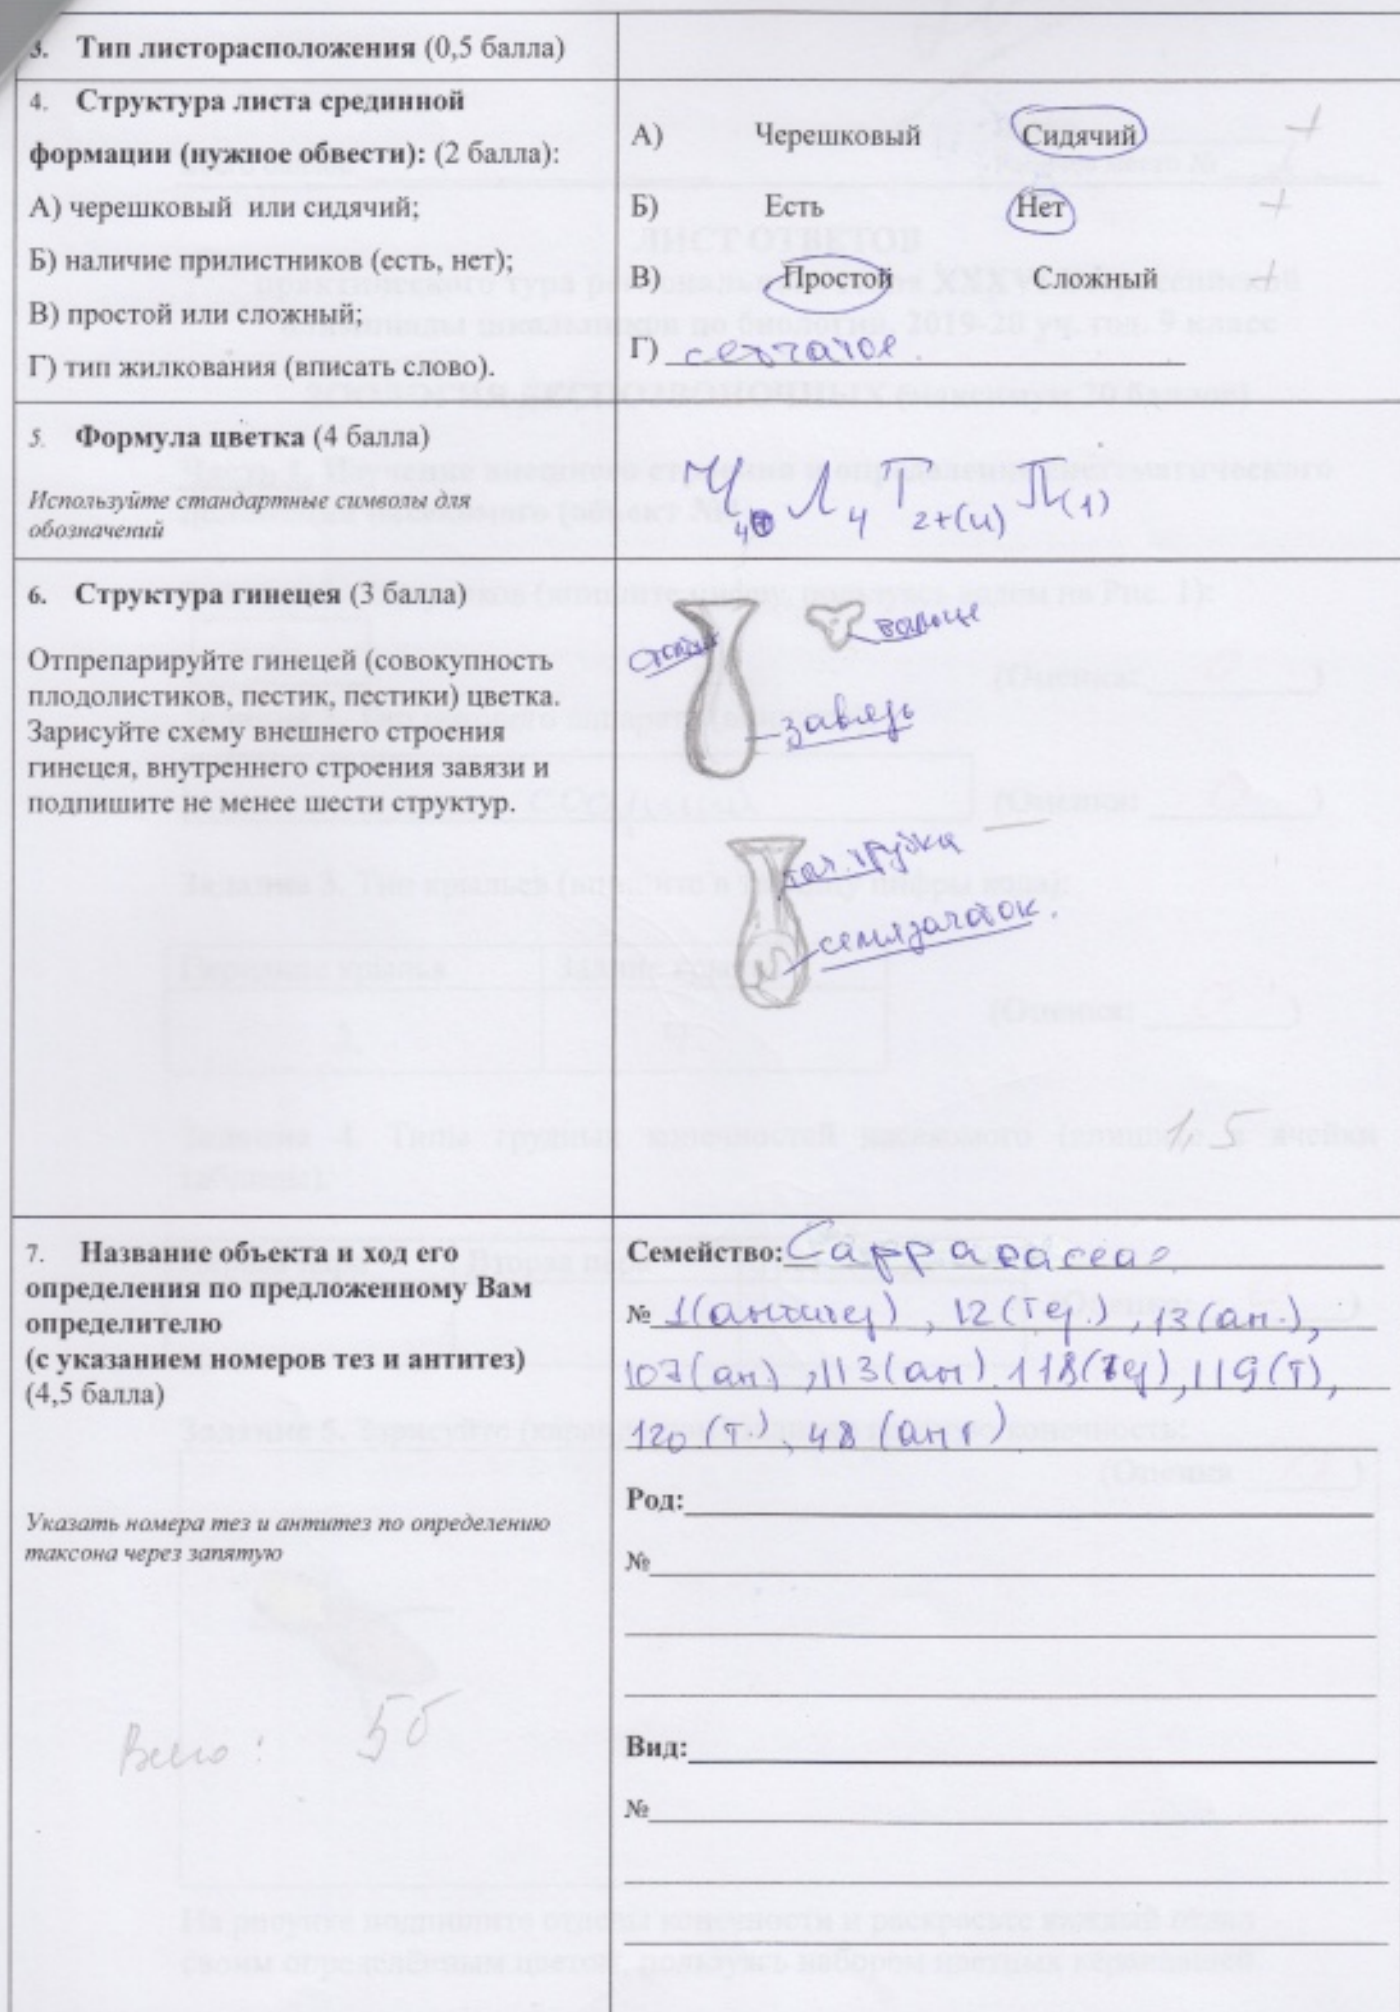 3. Тип листорасположения (0,5 балла)
4. Структура листа срединной
формации (нужное обвести): (2 балла):
А) черешковый или сидячий;
Б) наличие прилистников (есть, нет);
В) простой или сложный;
Г) тип жилкования (вписать слово).
А) Черешковый Сидячий +
Б) Есть Нет +
В) Простой Сложный +
Г) сетчатое
5. Формула цветка (4 балла)
Используйте стандартные символы для
обозначений
Ч4 Л4 Т2+(4) П(1)
6. Структура гинецея (3 балла)
Отпрепарируйте гинецей (совокупность
плодолистиков, пестик, пестики) цветка.
Зарисуйте схему внешнего строения
гинецея, внутреннего строения завязи и
подпишите не менее шести структур.
завязь
семязачаток.
1,5
7. Название объекта и ход его
определения по предложенному Вам
определителю
(с указанием номеров тез и антитез)
(4,5 балла)
Указать номера тез и антитез по определению
таксона через запятую
Всего: 5б
Семейство: Capparaceae
№ 1(антитез), 12(тез.), 13(ан.),
107(ан), 113(ан). 118(тез), 119(т),
120(т), 48(ант)
Род:
№
Вид:
№